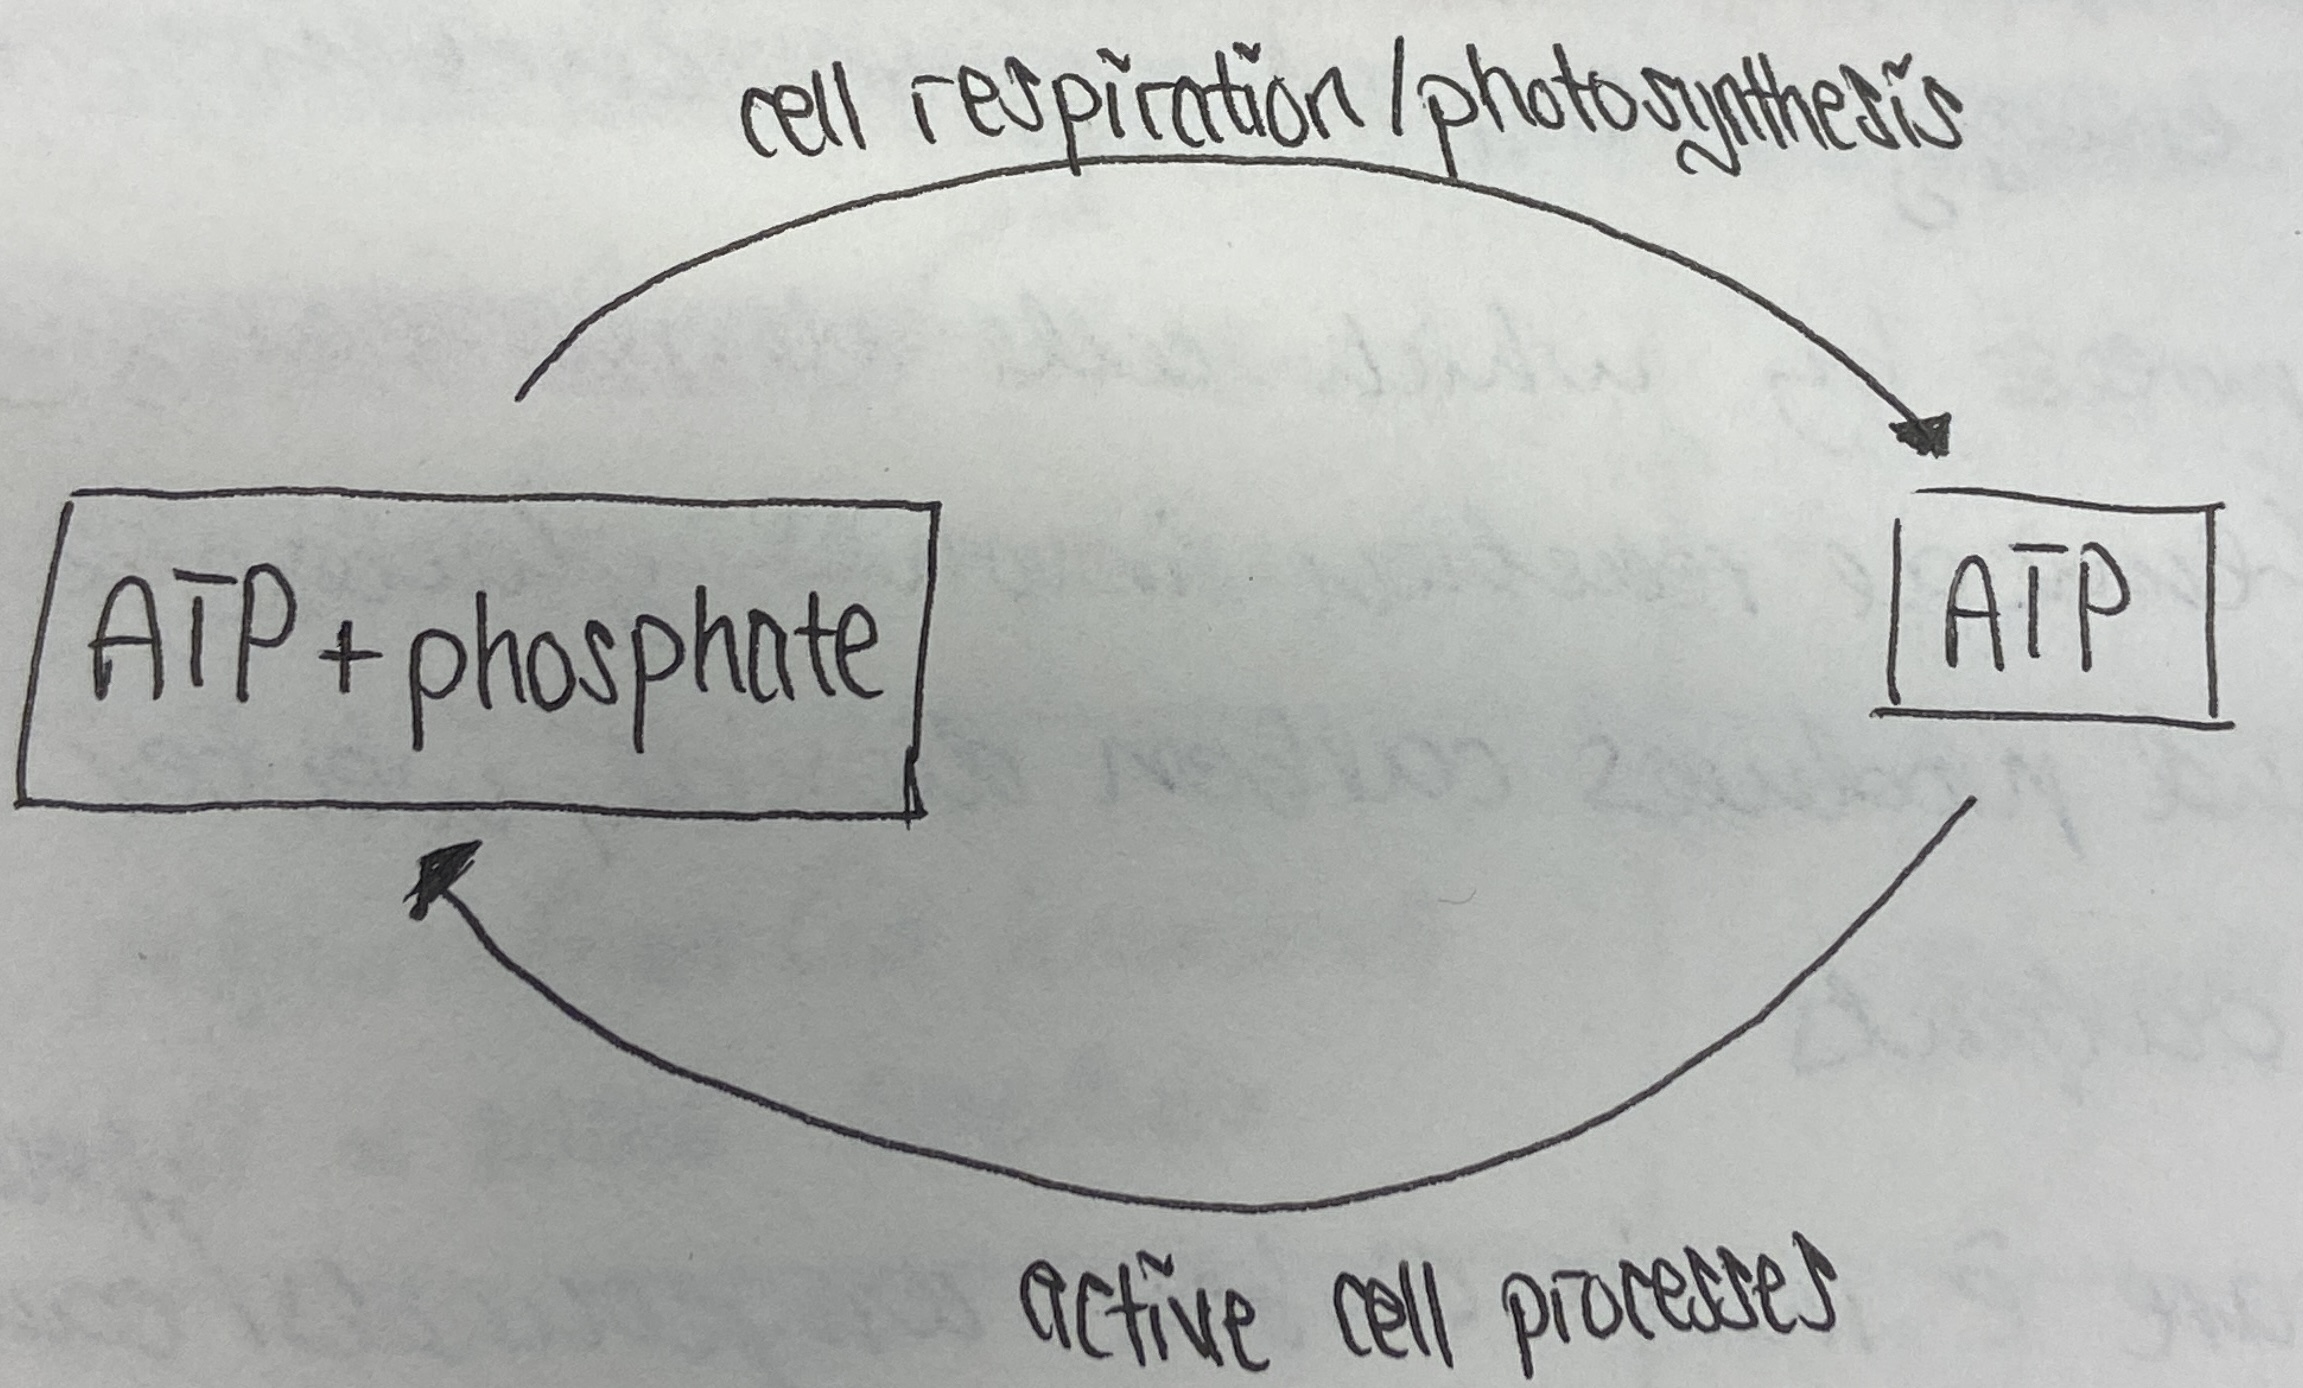 cell respiration/photosynthesis
ATP + phosphate
ATP
active cell processes